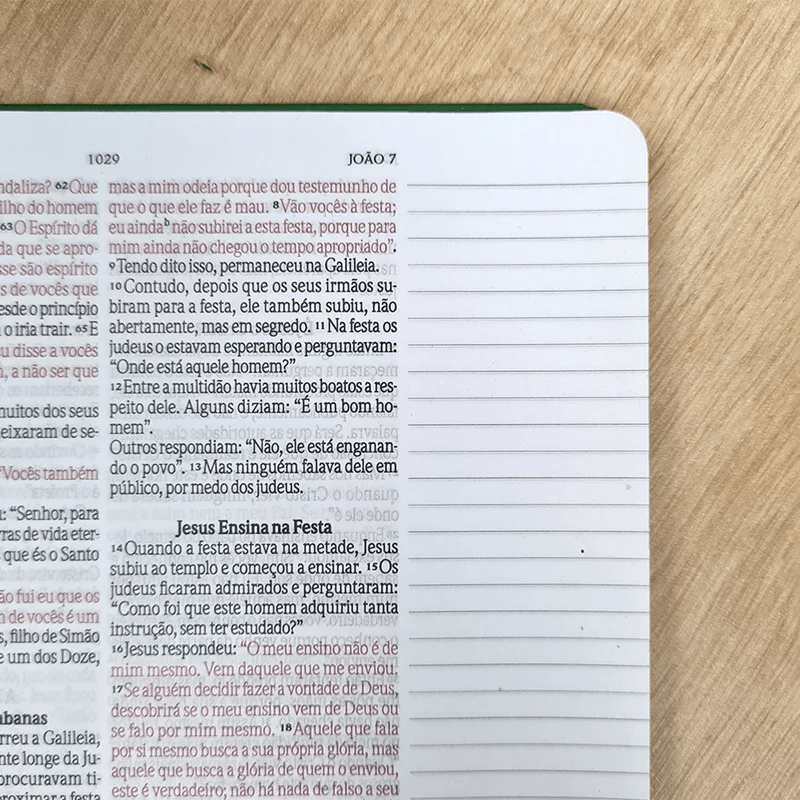 1029
JOÃO 7
ndaliza? 62 Que
ilho do homem
63 O Espírito dá
da que se apro-
sse são espírito
s de vocês que
esde o princípio
o iria trair. 65 E
u disse a vocês
, a não ser que
muitos dos seus
eixaram de se-
"Vocês também
: "Senhor, para
ras de vida eter-
que és o Santo
ão fui eu que os
m de vocês é um
s, filho de Simão
e um dos Doze,
banas
rreu a Galileia,
nte longe da Ju-
procuravam ti-
roximar a festa
mas a mim odeia porque dou testemunho de
que o que ele faz é mau. 8 Vão vocês à festa;
eu ainda b não subirei a esta festa, porque para
mim ainda não chegou o tempo apropriado".
9 Tendo dito isso, permaneceu na Galileia.
10 Contudo, depois que os seus irmãos su-
biram para a festa, ele também subiu, não
abertamente, mas em segredo. 11 Na festa os
judeus o estavam esperando e perguntavam:
"Onde está aquele homem?"
12 Entre a multidão havia muitos boatos a res-
peito dele. Alguns diziam: "É um bom ho-
mem".
Outros respondiam: "Não, ele está enganan-
do o povo". 13 Mas ninguém falava dele em
público, por medo dos judeus.
Jesus Ensina na Festa
14 Quando a festa estava na metade, Jesus
subiu ao templo e começou a ensinar. 15 Os
judeus ficaram admirados e perguntaram:
"Como foi que este homem adquiriu tanta
instrução, sem ter estudado?"
16 Jesus respondeu: "O meu ensino não é de
mim mesmo. Vem daquele que me enviou.
17 Se alguém decidir fazer a vontade de Deus,
descobrirá se o meu ensino vem de Deus ou
se falo por mim mesmo. 18 Aquele que fala
por si mesmo busca a sua própria glória, mas
aquele que busca a glória de quem o enviou,
este é verdadeiro; não há nada de falso a seu